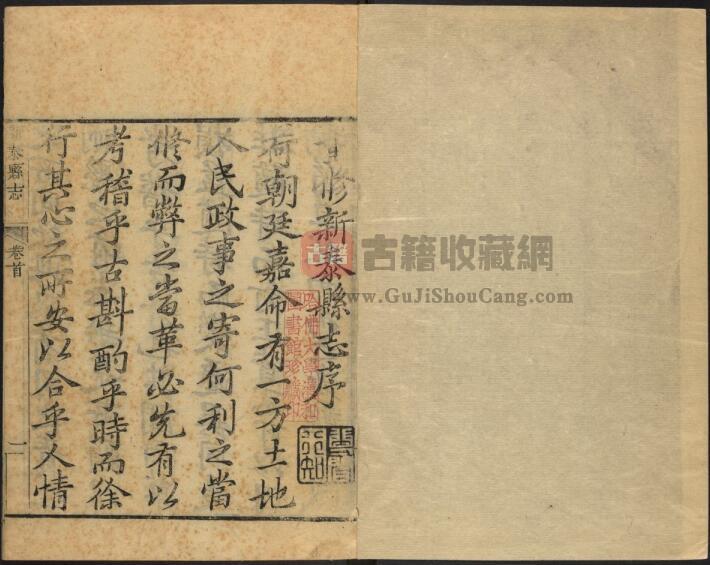 修新泰縣志序
荷朝廷嘉命有一方土地
人民政事之寄何利之當
修而弊之當革必先有以
考稽乎古斟酌乎時而徐
行其心之所安以合乎人情
泰縣志
卷首
一
哈佛大學漢和
圖書館珍藏印
古籍
古籍收藏網
www.GuJiShouCang.com